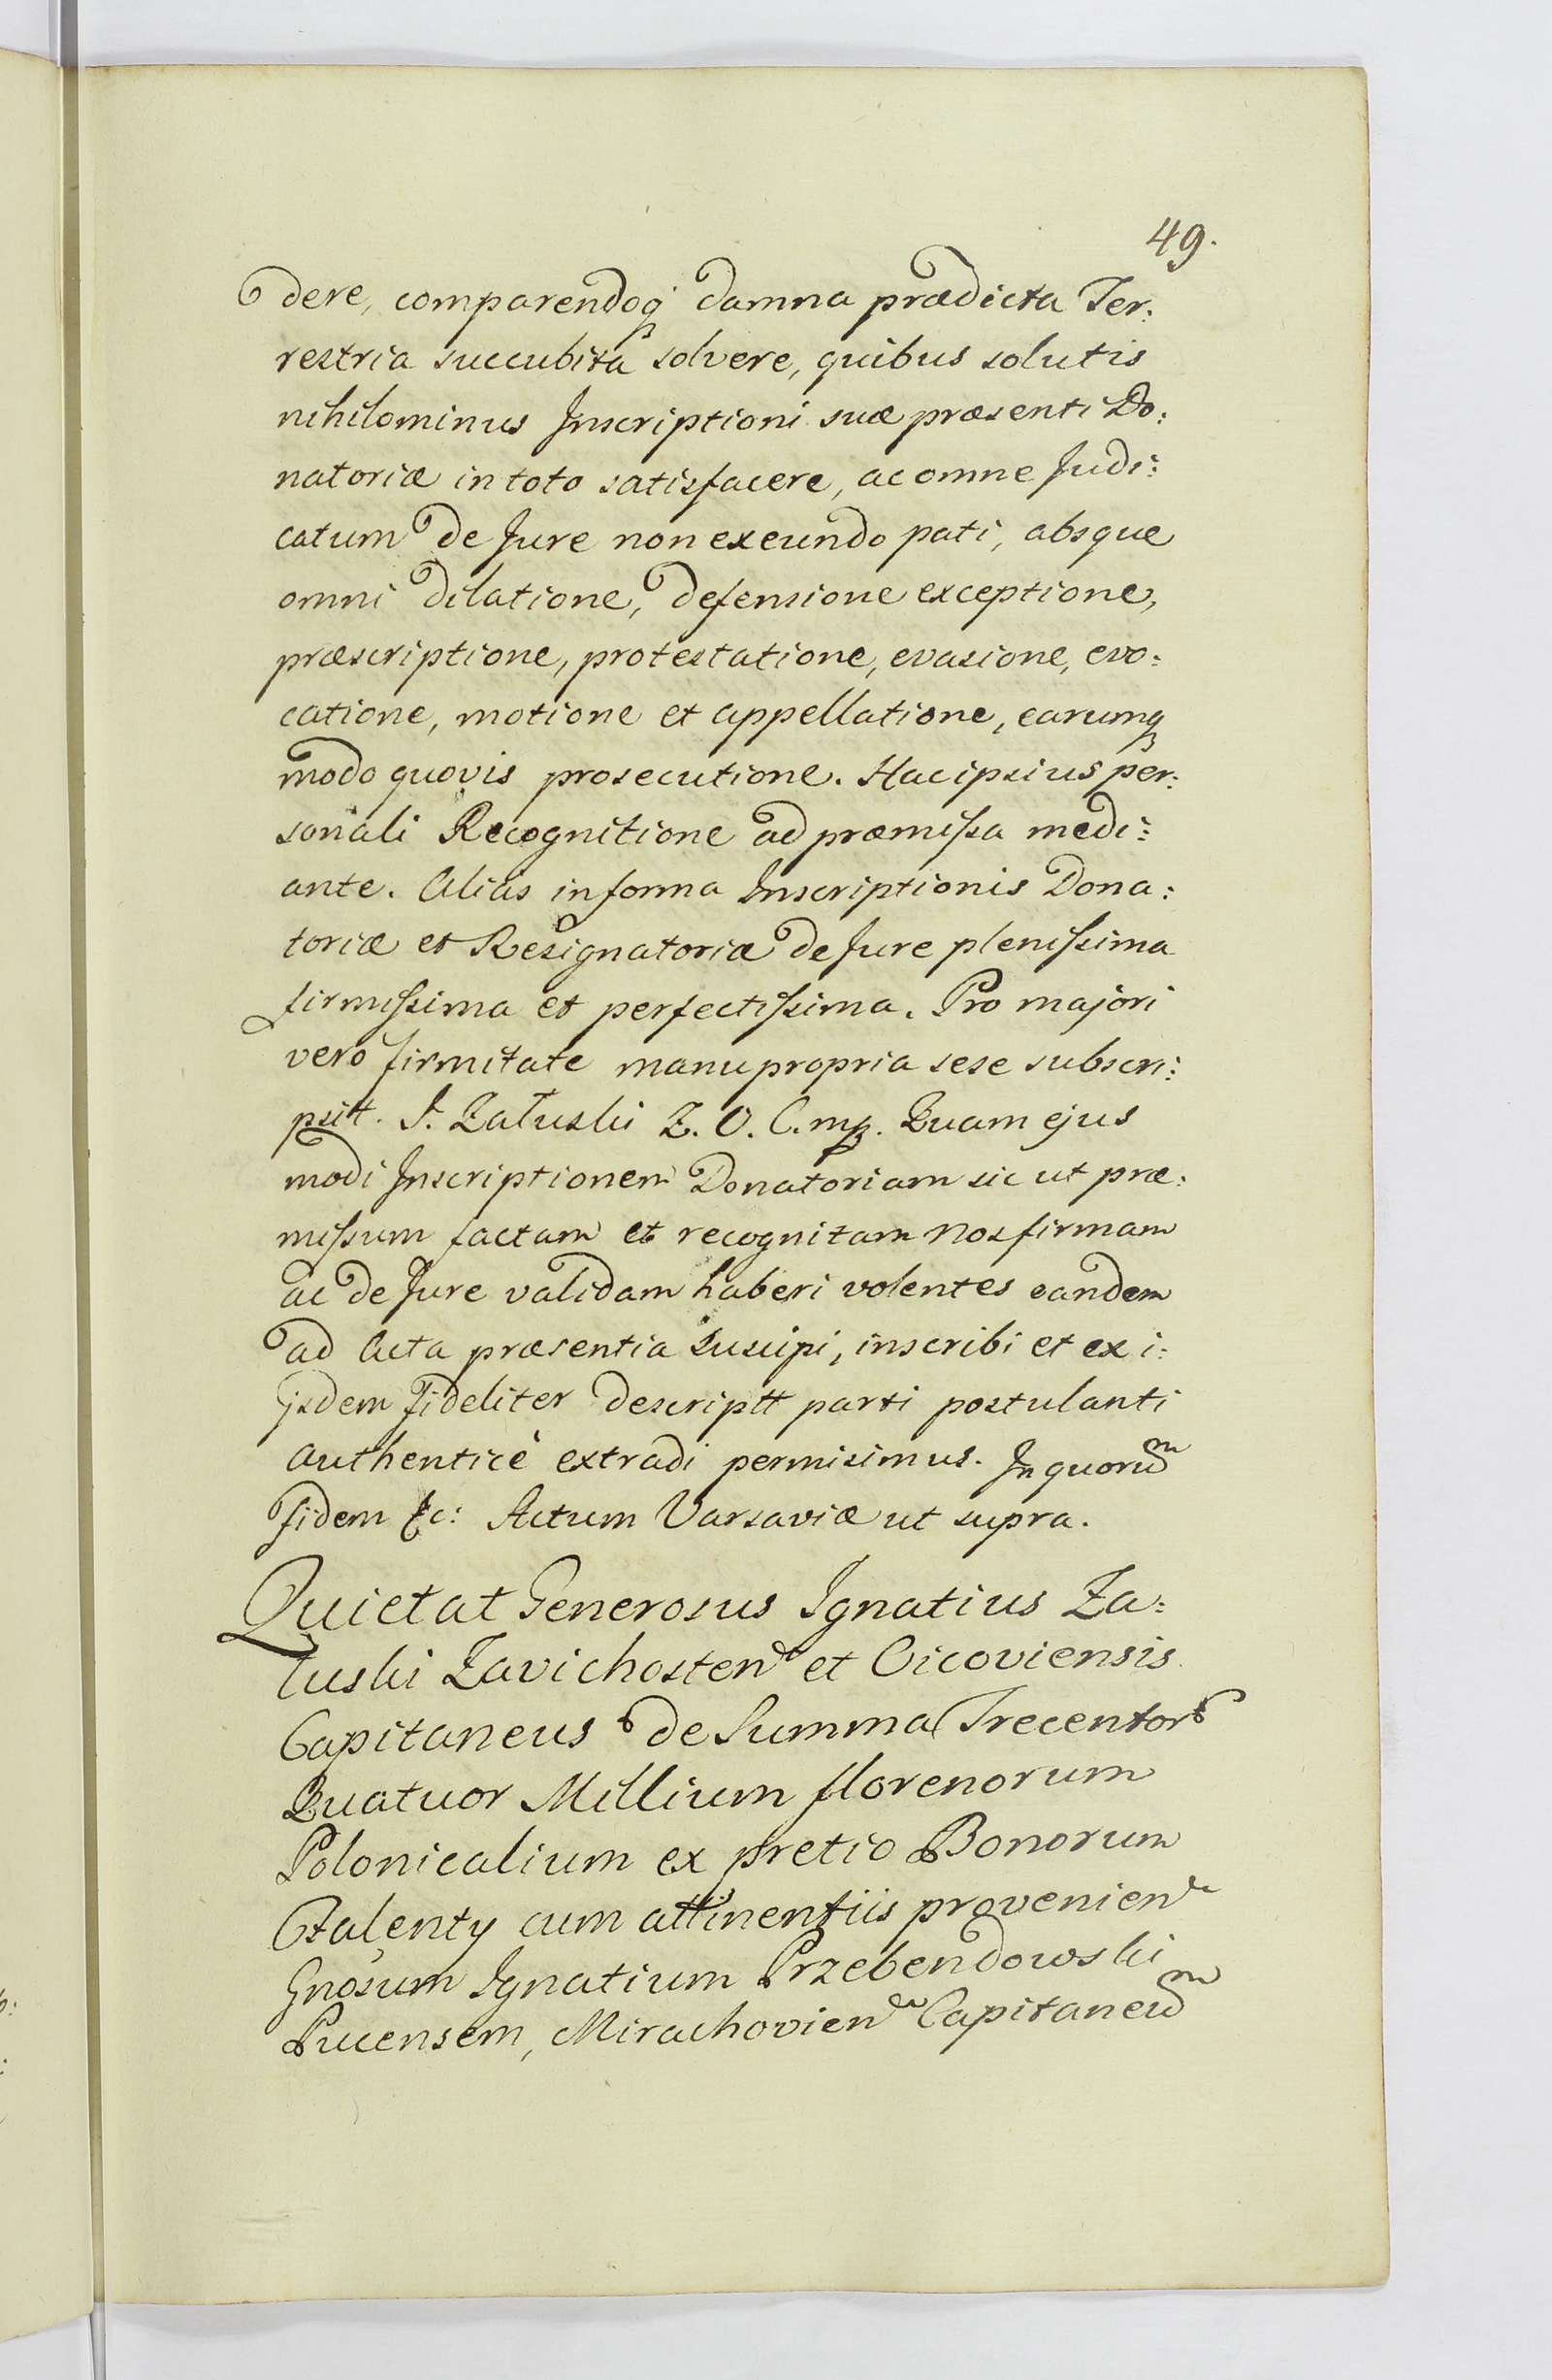 49.
dere, comparendoq́ damna prædicta Ter:
restria succubita solvere, quibus solutis
nihilominus Inscriptioni suæ præsenti Do:
natoriæ in toto satisfacere, ac omne Judi:
catum de Jure non exeundo pati, absque
omni dilatione, defensione exceptione,
præscriptione, protestatione, evasione, evo:
catione, motione et appellatione, earumq
modo quovis prosecutione. Hac ipsius per:
sonali Recognitione ad præmissa medi:
ante. Alias in forma Inscriptionis Dona:
toriæ et Resignatoriæ de Jure plenissima
firmissima et perfectissima. Pro majori
vero firmitate manu propria sese subscri:
psitt. J. Załuski Z. O. C. mp. Quam ejus
modi Inscriptionem Donatoriam sic ut præ:
missum factam et recognitam nos firmam
ac de Jure validam haberi volentes eandem
ad Acta præsentia suscipi, inscribi et ex i:
jsdem fideliter descriptt parti postulanti
authenticè extradi permisimus. In quorũ
fidem &c: Actum Varsaviæ ut supra.
Quietat Generosus Ignatius Za:
łuski Zavichosten et Oicoviensis
Capitaneus de Summa Trecentor
Quatuor Millium florenorum
Polonicalium ex pretio Bonorum
Otalenty cum attinentiis provenien
Gnosum Ignatium Przebendowski
Pucensem, Mirachovien Capitaneũ